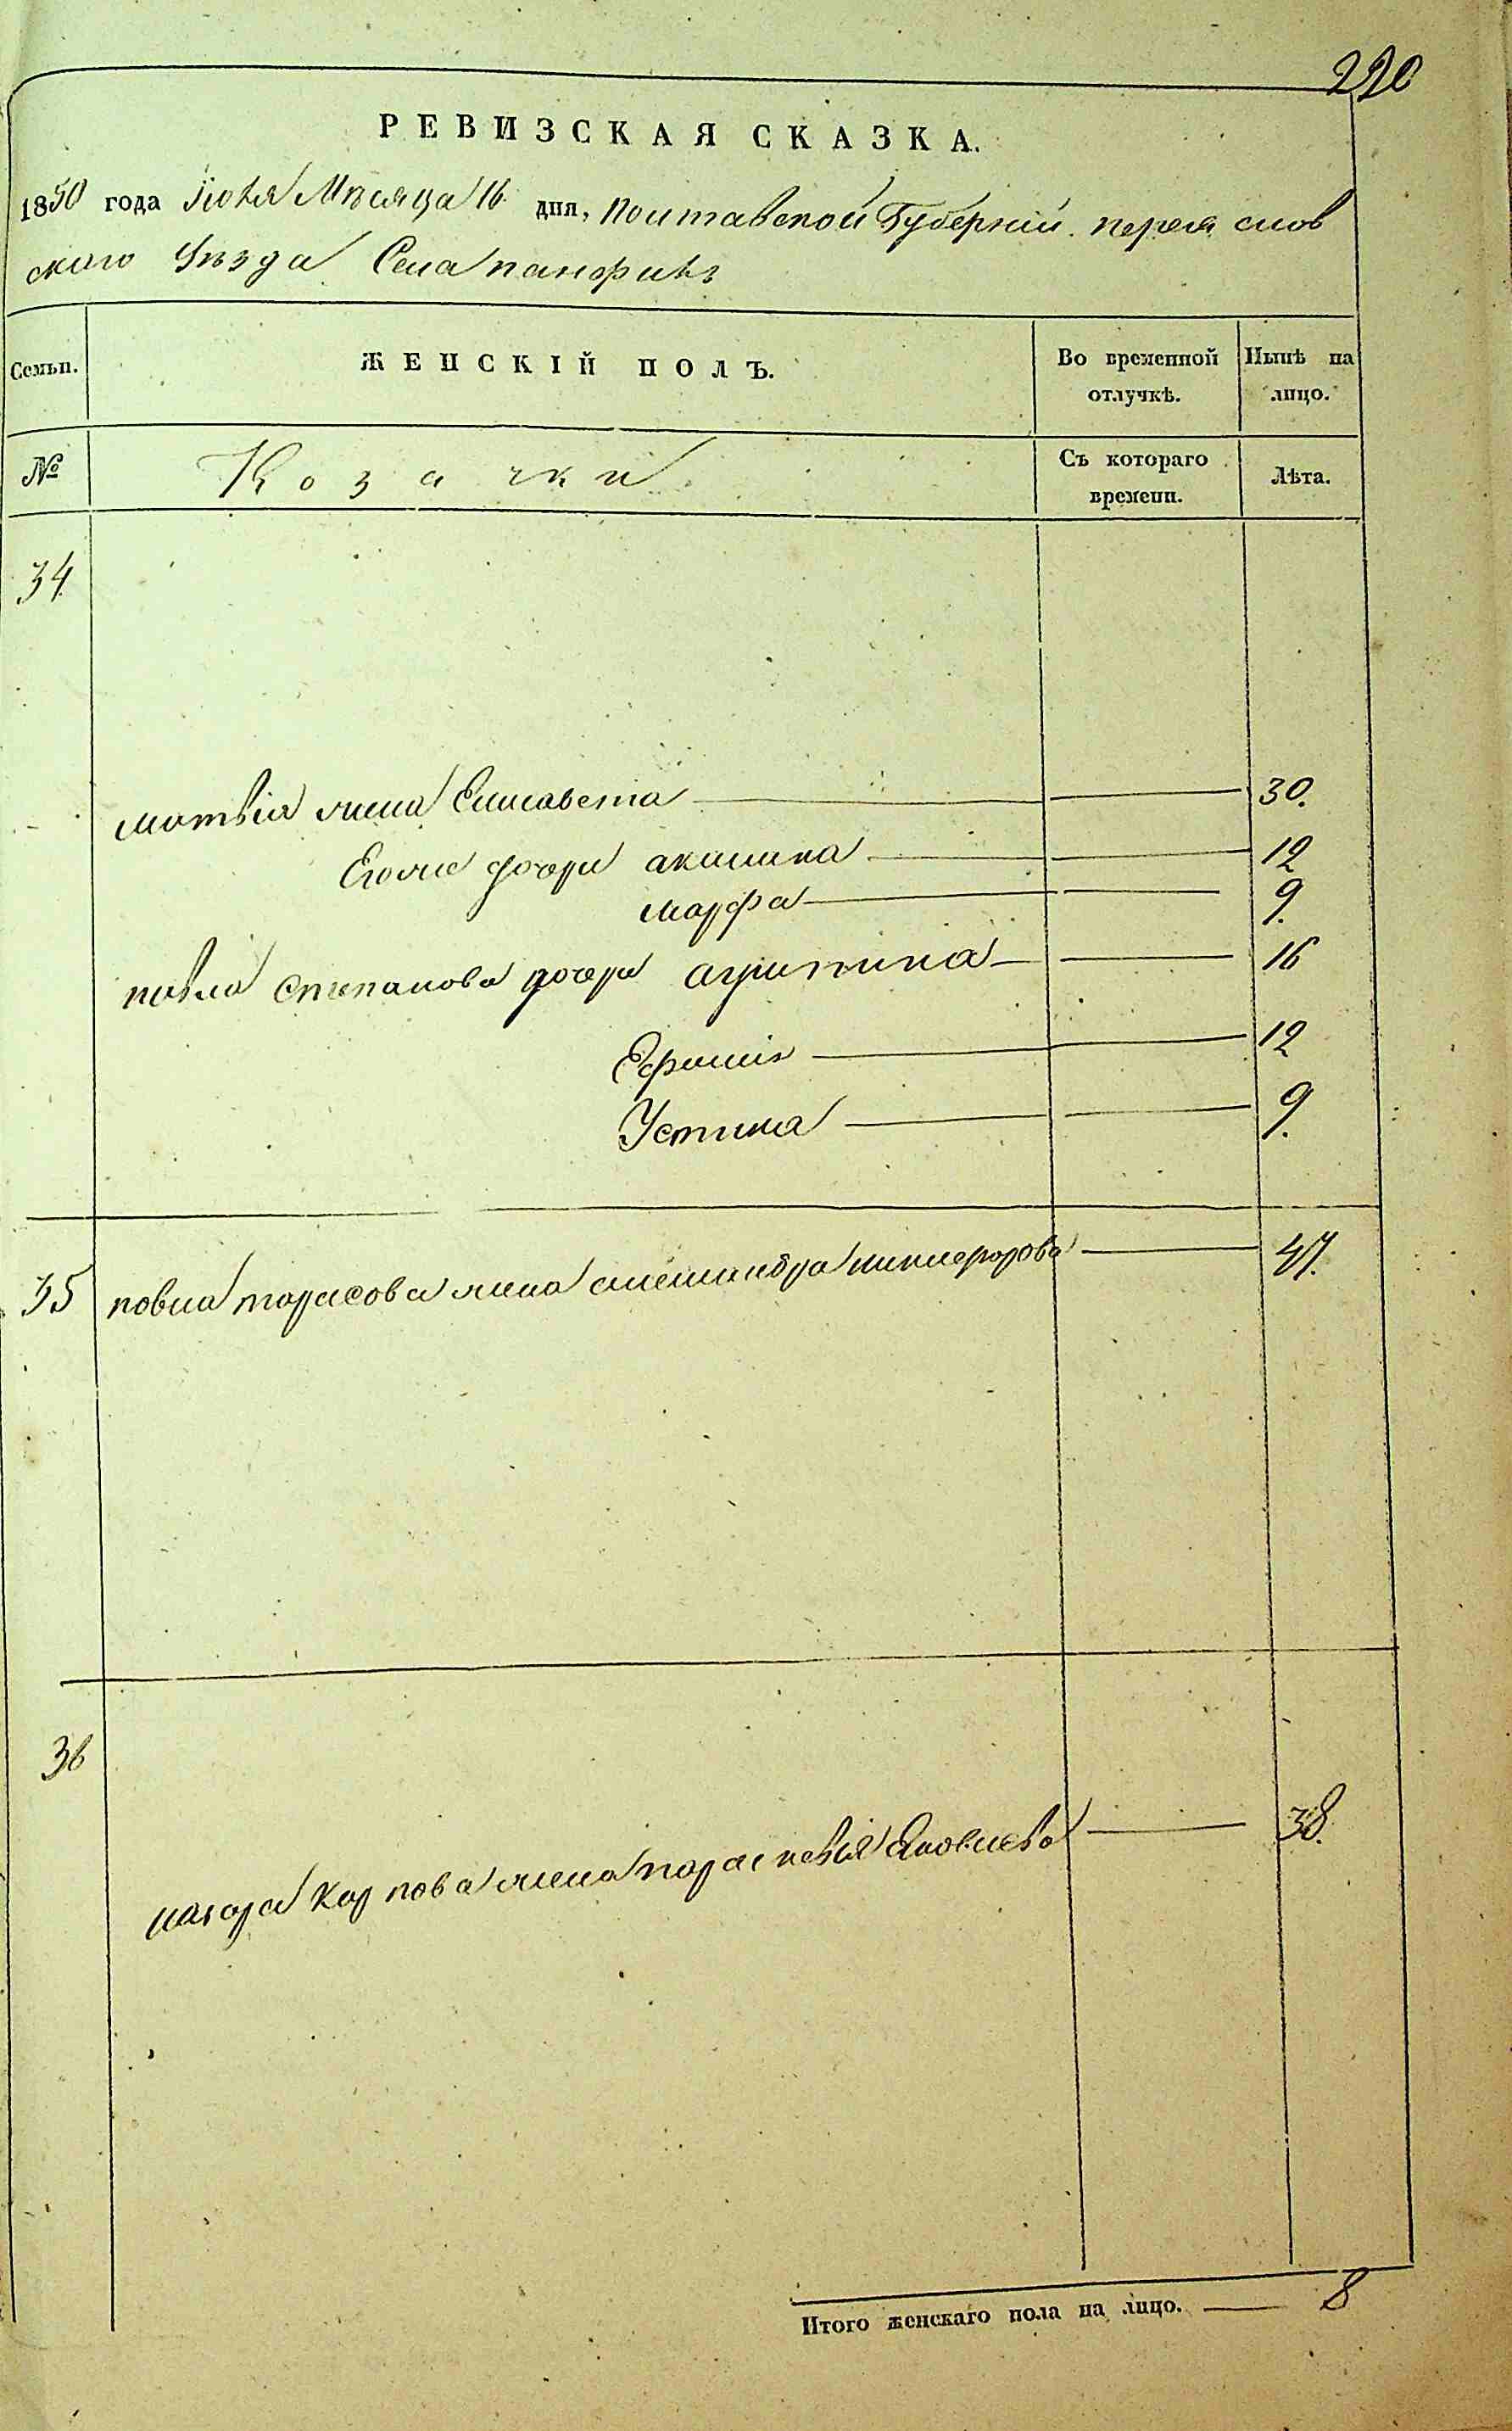 220
РЕВИЗСКАЯ СКАЗКА.
1850 года Июня Мѣсяца 16 дня, Полтавской Губерніи переяслов
ского Уѣзда Села панфилъ
Семьи. ЖЕНСКІЙ ПОЛЪ. Во временной отлучкѣ. Нынѣ на лицо.
№ Козачки Съ котораго времени. Лѣта.
34
матвія жена Елисавета 30.
Егоже дочери акилина 12
марфа 9.
павла Степанова дочери агрипина 16
Ефимія 12
Устина 9.
35 павла тарасова жена александра никифорова 47.
36
назара карпова жена параскевія Яковлева 38.
Итого женскаго пола на лицо. 8